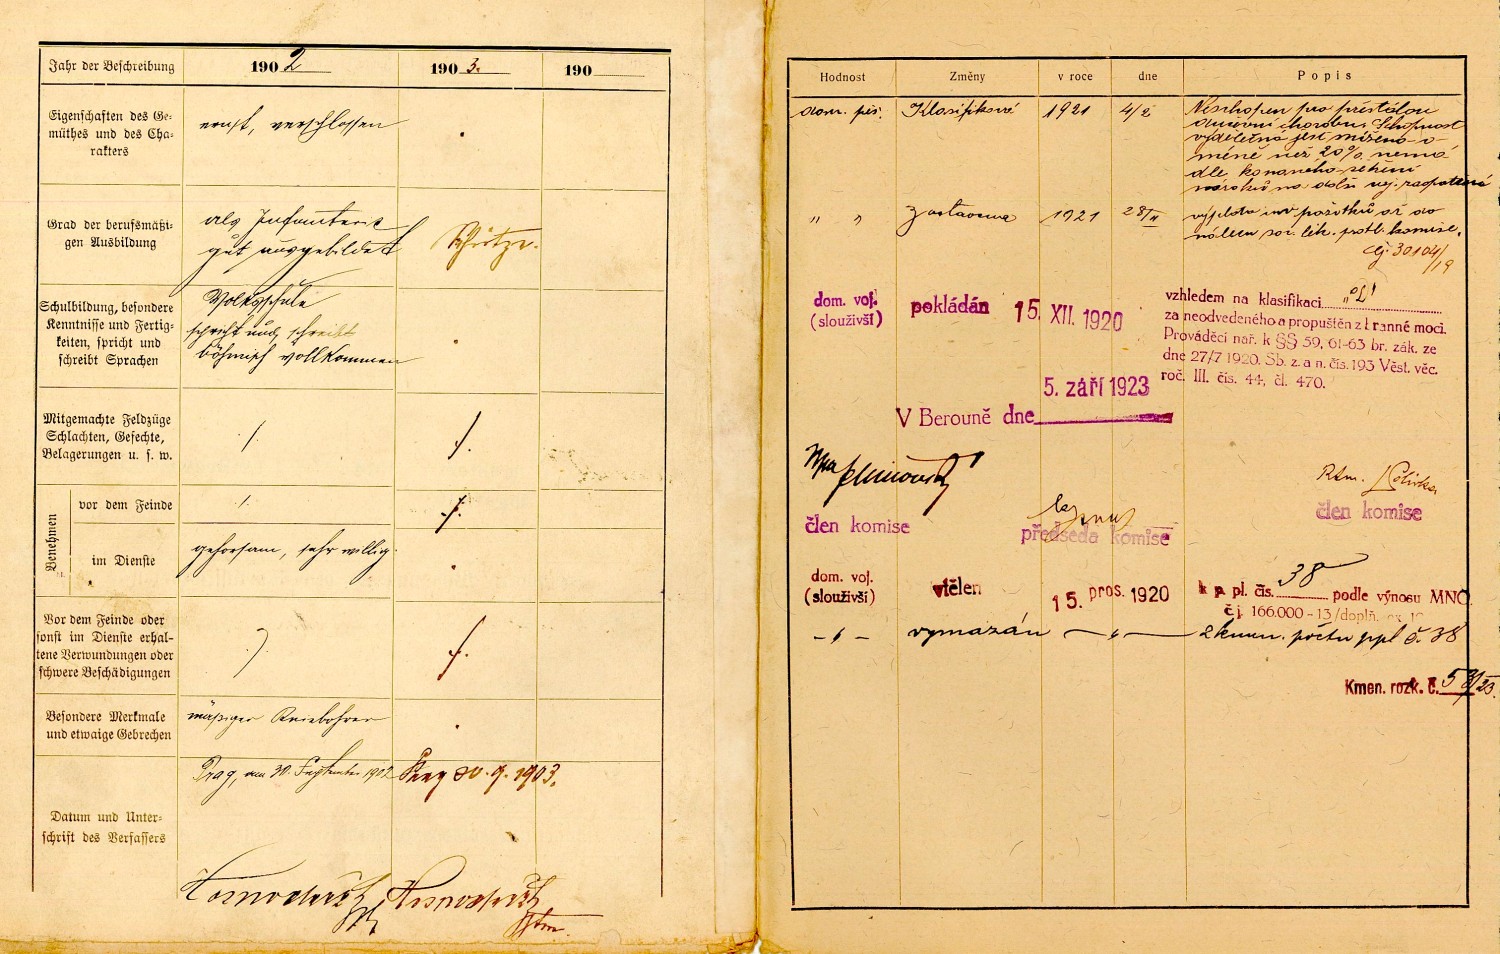 Jahr der Beschreibung
1902
1903.
190
Eigenschaften des Ge-
müthes und des Cha-
rakters
ernst, verschlossen
Grad der berufsmäßi-
gen Ausbildung
als Infanterist
gut ausgebildet
Schütze.
Schulbildung, besondere
Kenntnisse und Fertig-
keiten, spricht und
schreibt Sprachen
Volksschule
spricht und schreibt
böhmisch vollkommen
Mitgemachte Feldzüge
Schlachten, Gefechte,
Belagerungen u. s. w.
Benehmen
vor dem Feinde
im Dienste
gehorsam, sehr willig.
Vor dem Feinde oder
sonst im Dienste erhal-
tene Verwundungen oder
schwere Beschädigungen
Besondere Merkmale
und etwaige Gebrechen
mäßiger Kniebohrer
Datum und Unter-
schrift des Verfassers
Prag, am 30. September 1902
Prag 30. 9. 1903.
Hodnost
Změny
v roce
dne
Popis
dom. pěš.
Klasifikové
1921
4/2
Neschopen pro přestálou
duševní chorobu. Schopnost
výdělečná jest snížena o
méně než 20% nemá
dle konaného šetření
nároků na další vyj. zaopatření
" "
zastavena
1921
28/II
výplata inv požitků až do
nálezu soc. lék. prohl. komise.
čj. 30104/19
dom. voj.
(slouživší)
pokládán
15. XII. 1920
vzhledem na klasifikaci „D“
za neodvedeného a propuštěn z branné moci.
Prováděcí nař. k §§ 59, 61-63 br. zák. ze
dne 27/7 1920. Sb. z. a n. čís. 193 Věst. věc.
roč. III. čís. 44, čl. 470.
5. září 1923
V Berouně dne
člen komise
předseda komise
Rtm.
člen komise
dom. voj.
(slouživší)
vtělen
15. pros. 1920
k p. pl. čís. 38 podle výnosu MNO
čj 166.000-13/doplň.
vymazán
z kmen. počtu ppl č. 38
Kmen. rozk. č. 58/23.